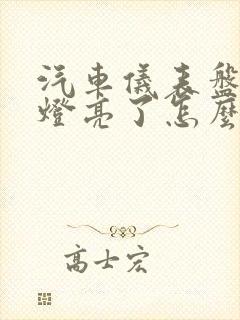 汽車儀表盤
燈亮了怎麼
高士宏